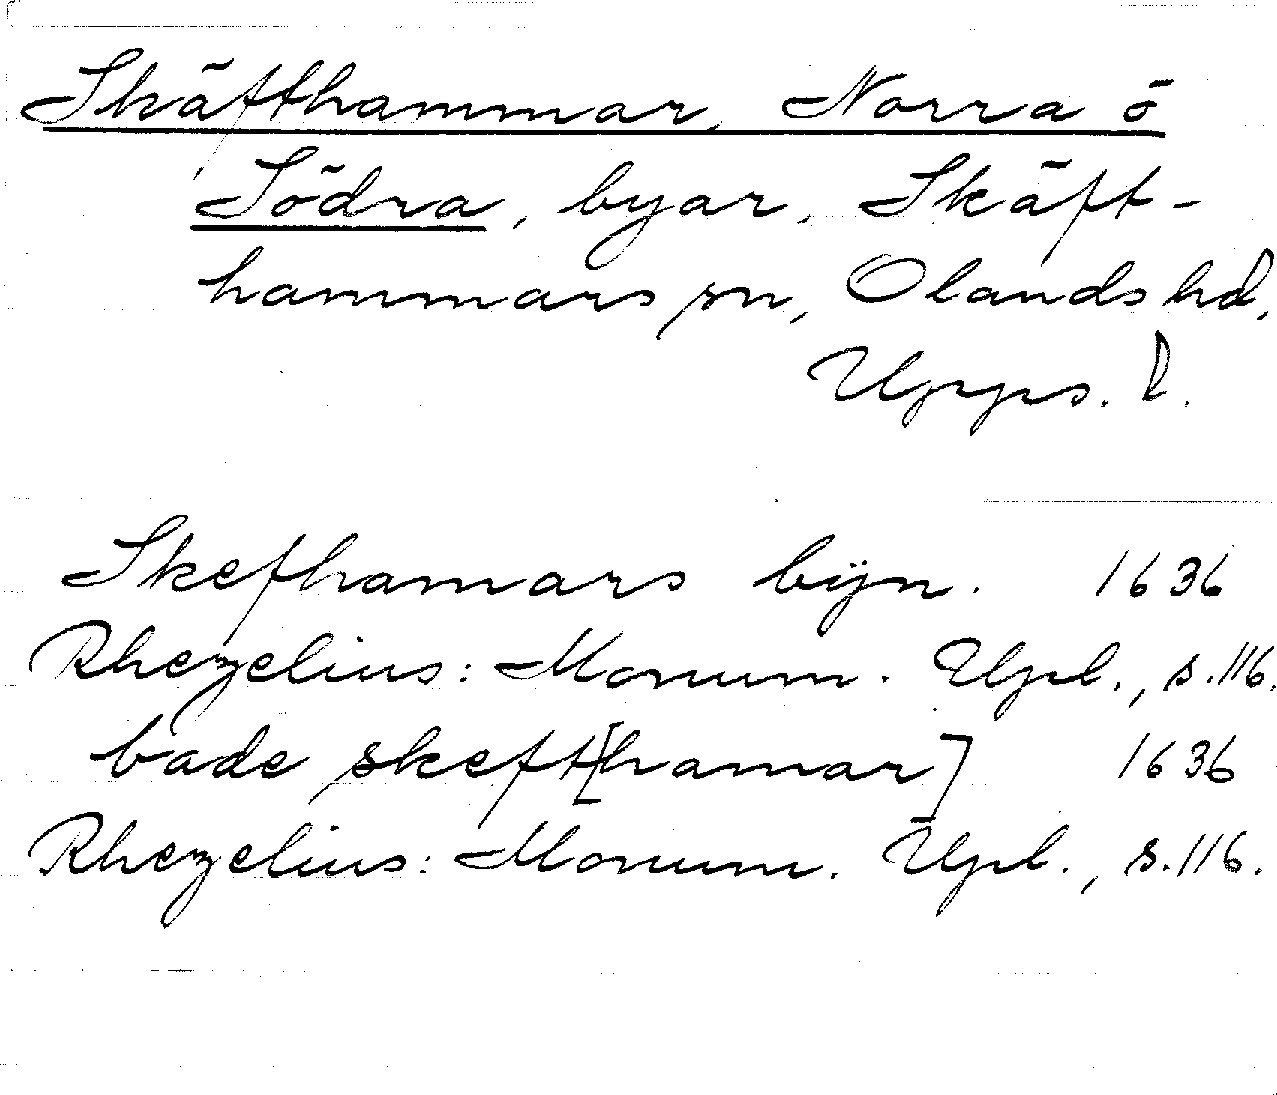 Skäfthammar, Norra o
Södra, byar, Skäft-
hammars sn, Olands hd,
Upps. l.
Skefhamars bÿn. 1636
Rhezelius: Monum. Upl., s.116.
bade skeft[hamar] 1636
Rhezelius: Monum. Upl., s.116.